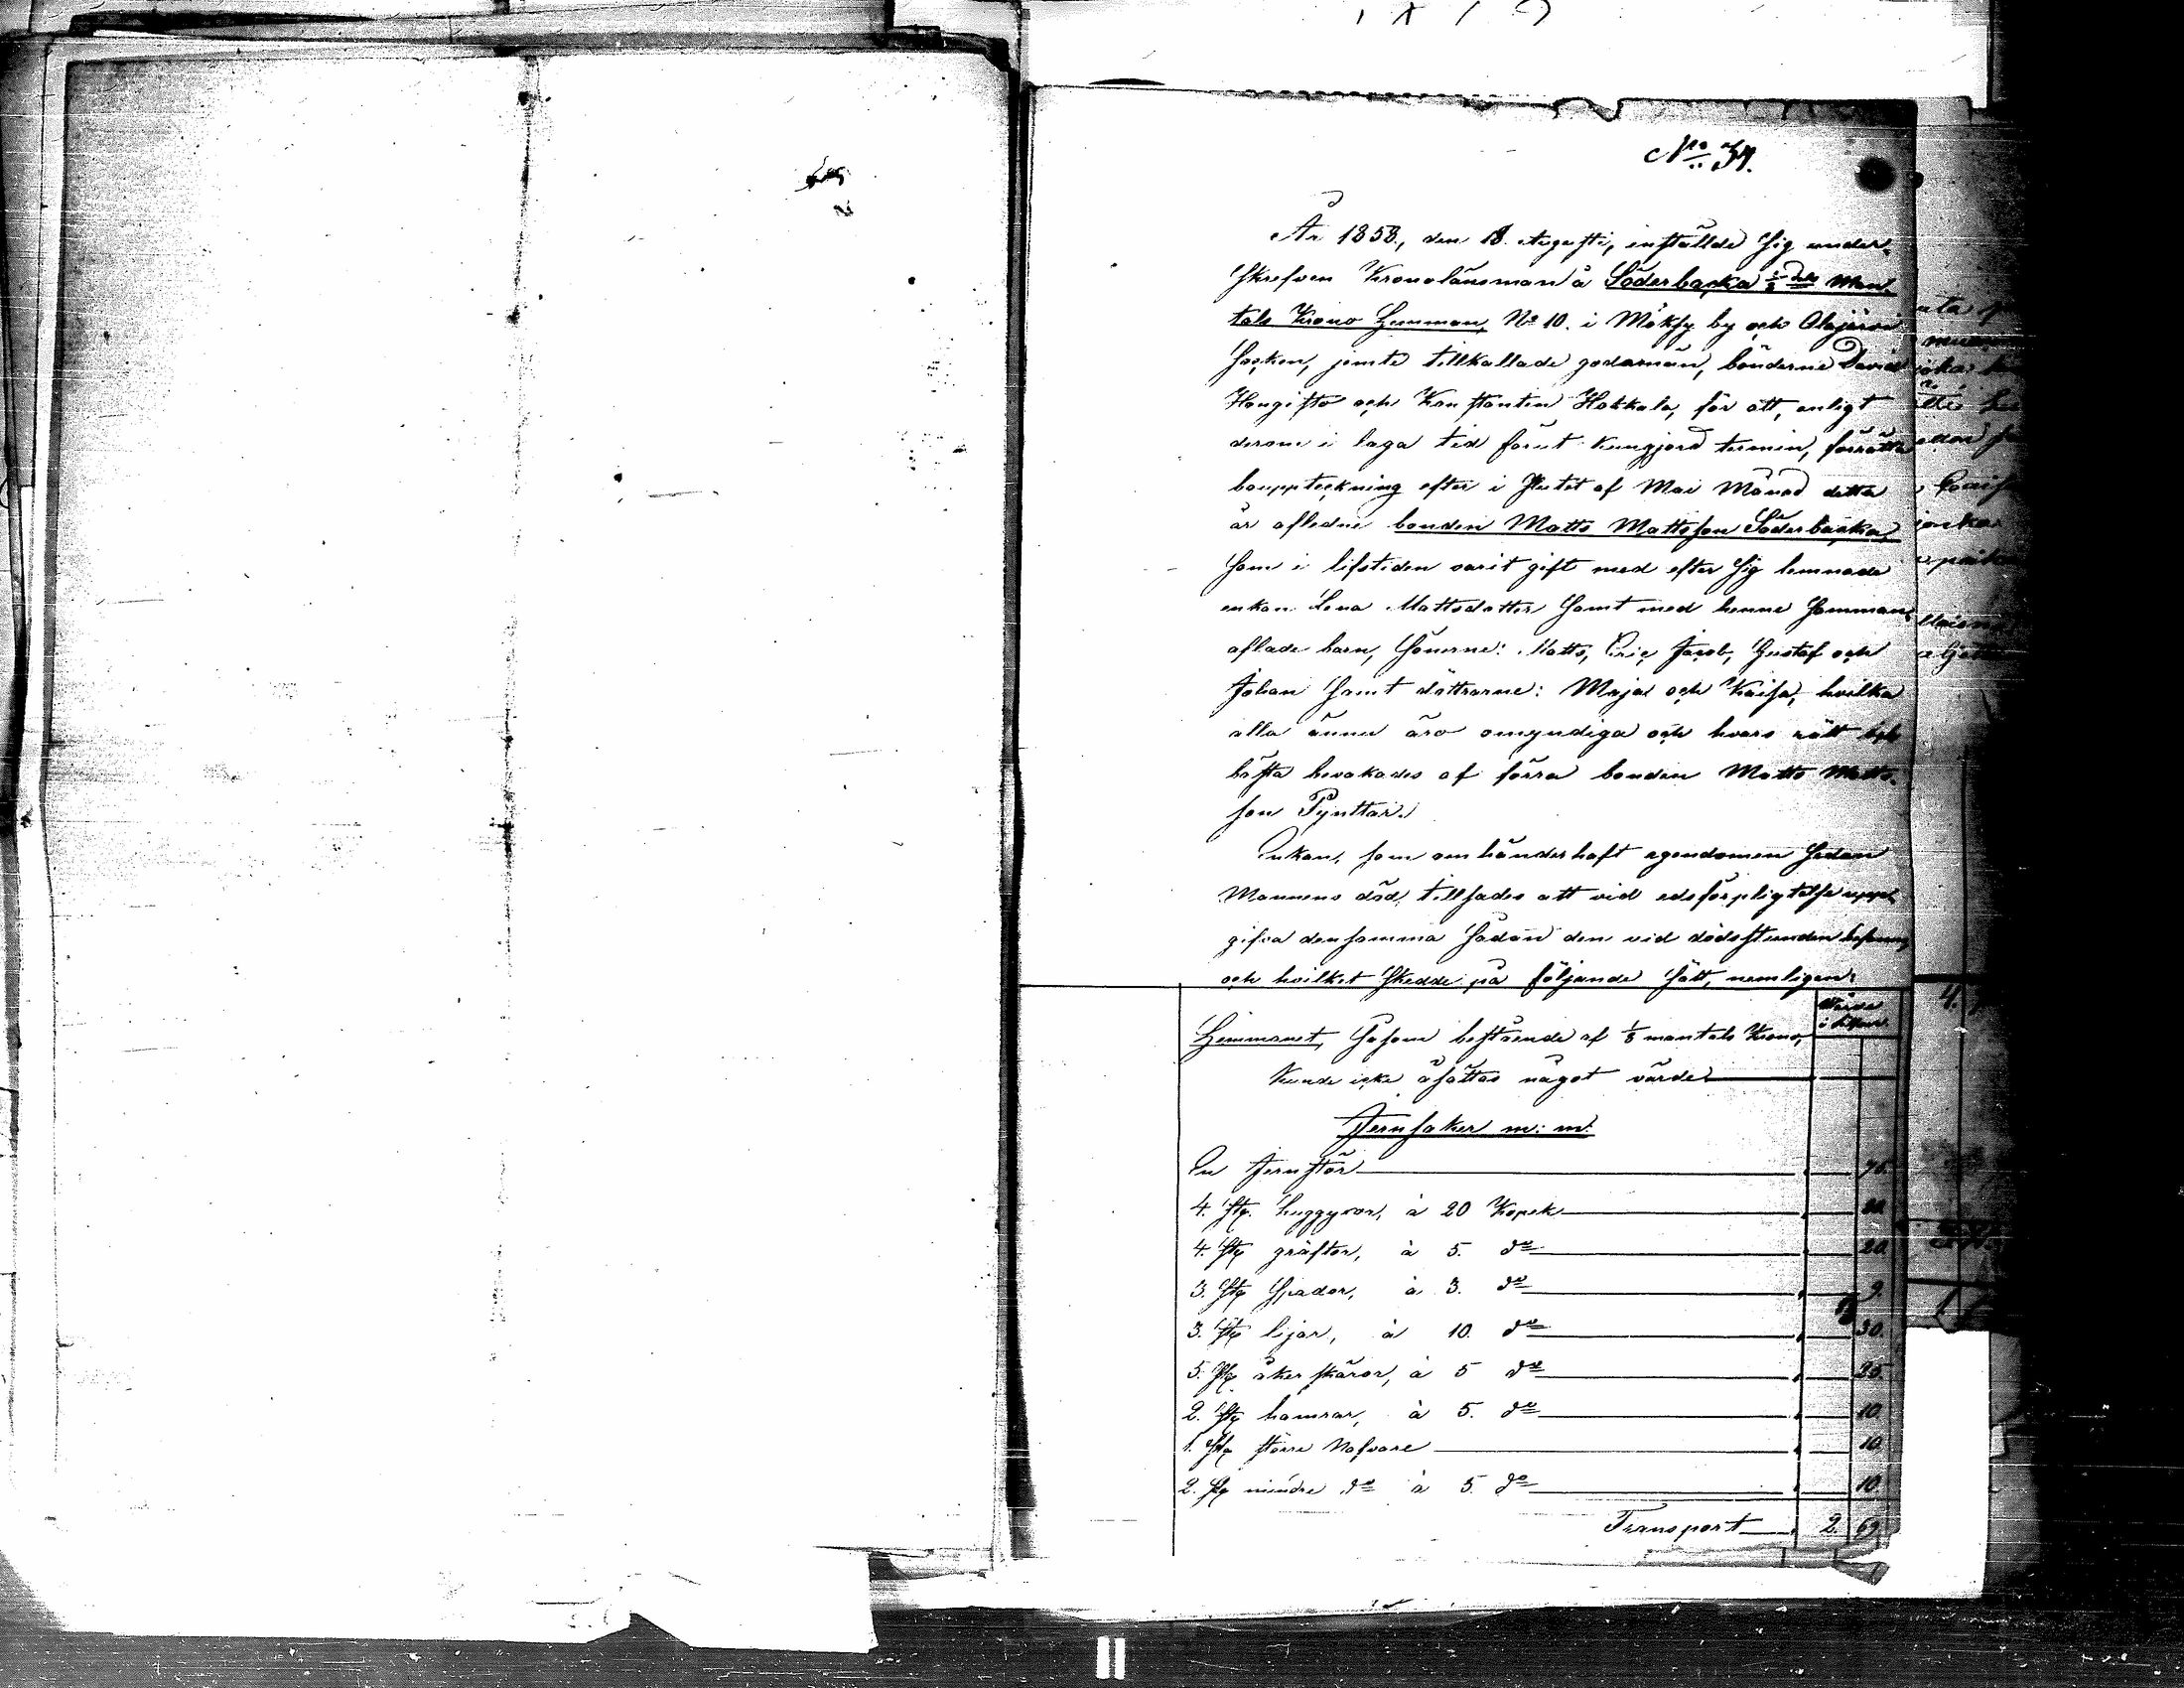 No 34.
År 1858., den 18. Augusti, instälde sig under-
skrefven Kronolänsman å Söderbacka 1/8 dels man-
tals Krono Hemman, No 10. i Möksy by och Alajärvi
socken, jemte tillkallade godemän, bönderne David
Hongisto och Konstantin Hokkala, för att, enligt
derom i laga tid förut kungjord termin, förrätta
bouppteckning efter i slutet af Maii Månad detta
år aflednе bonden Matts Mattsson Söderbacka,
som i lifstiden varit gift med efter sig lemnade
enkan Lena Mattsdotter samt med henne samman-
aflade barn, sönerne: Matts, Eric, Jacob, Gustaf och
Johan samt döttrarne: Maja och Kaisa, hvilka
alla ännu äro omyndiga och hvars rätt och
bästa bevakades af förra bonden Matts Matts-
son Pynttäri.
Enkan, som omhänderhaft egendomen sedan
Mannens död, tillsades att vid edsförpligtelse upp-
gifva densamma sådan den vid dödsstunden befanns
och hvilket skedde på följande sätt, nemligen:
Värde
i Silfver.
Hemmanet, såsom bestående af 1/8 mantals Krono,
kunde icke åsättas något värde
Jernsaker m: m:
En Jernstör 75.
4. st. huggyxor, à 20 Kopek 80.
4. st gräftor, à 5. do 20.
3. st spador, à 3. do 9.
3. st lijar, à 10. do 30.
5. st åkerskäror, à 5 do 25.
2. st hamrar, à 5. do 10.
1. st större Nafvare 10.
2. st mindre do à 5. do 10.
Transport 2. 69.